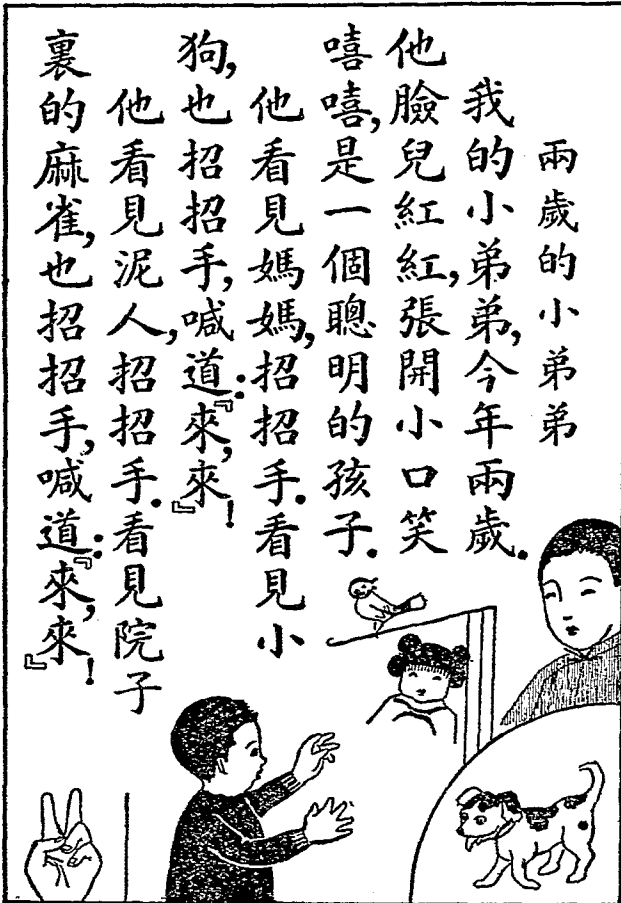 兩歲的小弟弟
我的小弟弟,今年兩歲.
他臉兒紅紅,張開小口笑
嘻嘻,是一個聰明的孩子.
他看見媽媽,招招手.看見小
狗,也招招手,喊道:『來,來!』
他看見泥人,招招手.看見院子
裏的麻雀,也招招手,喊道:『來,來!』